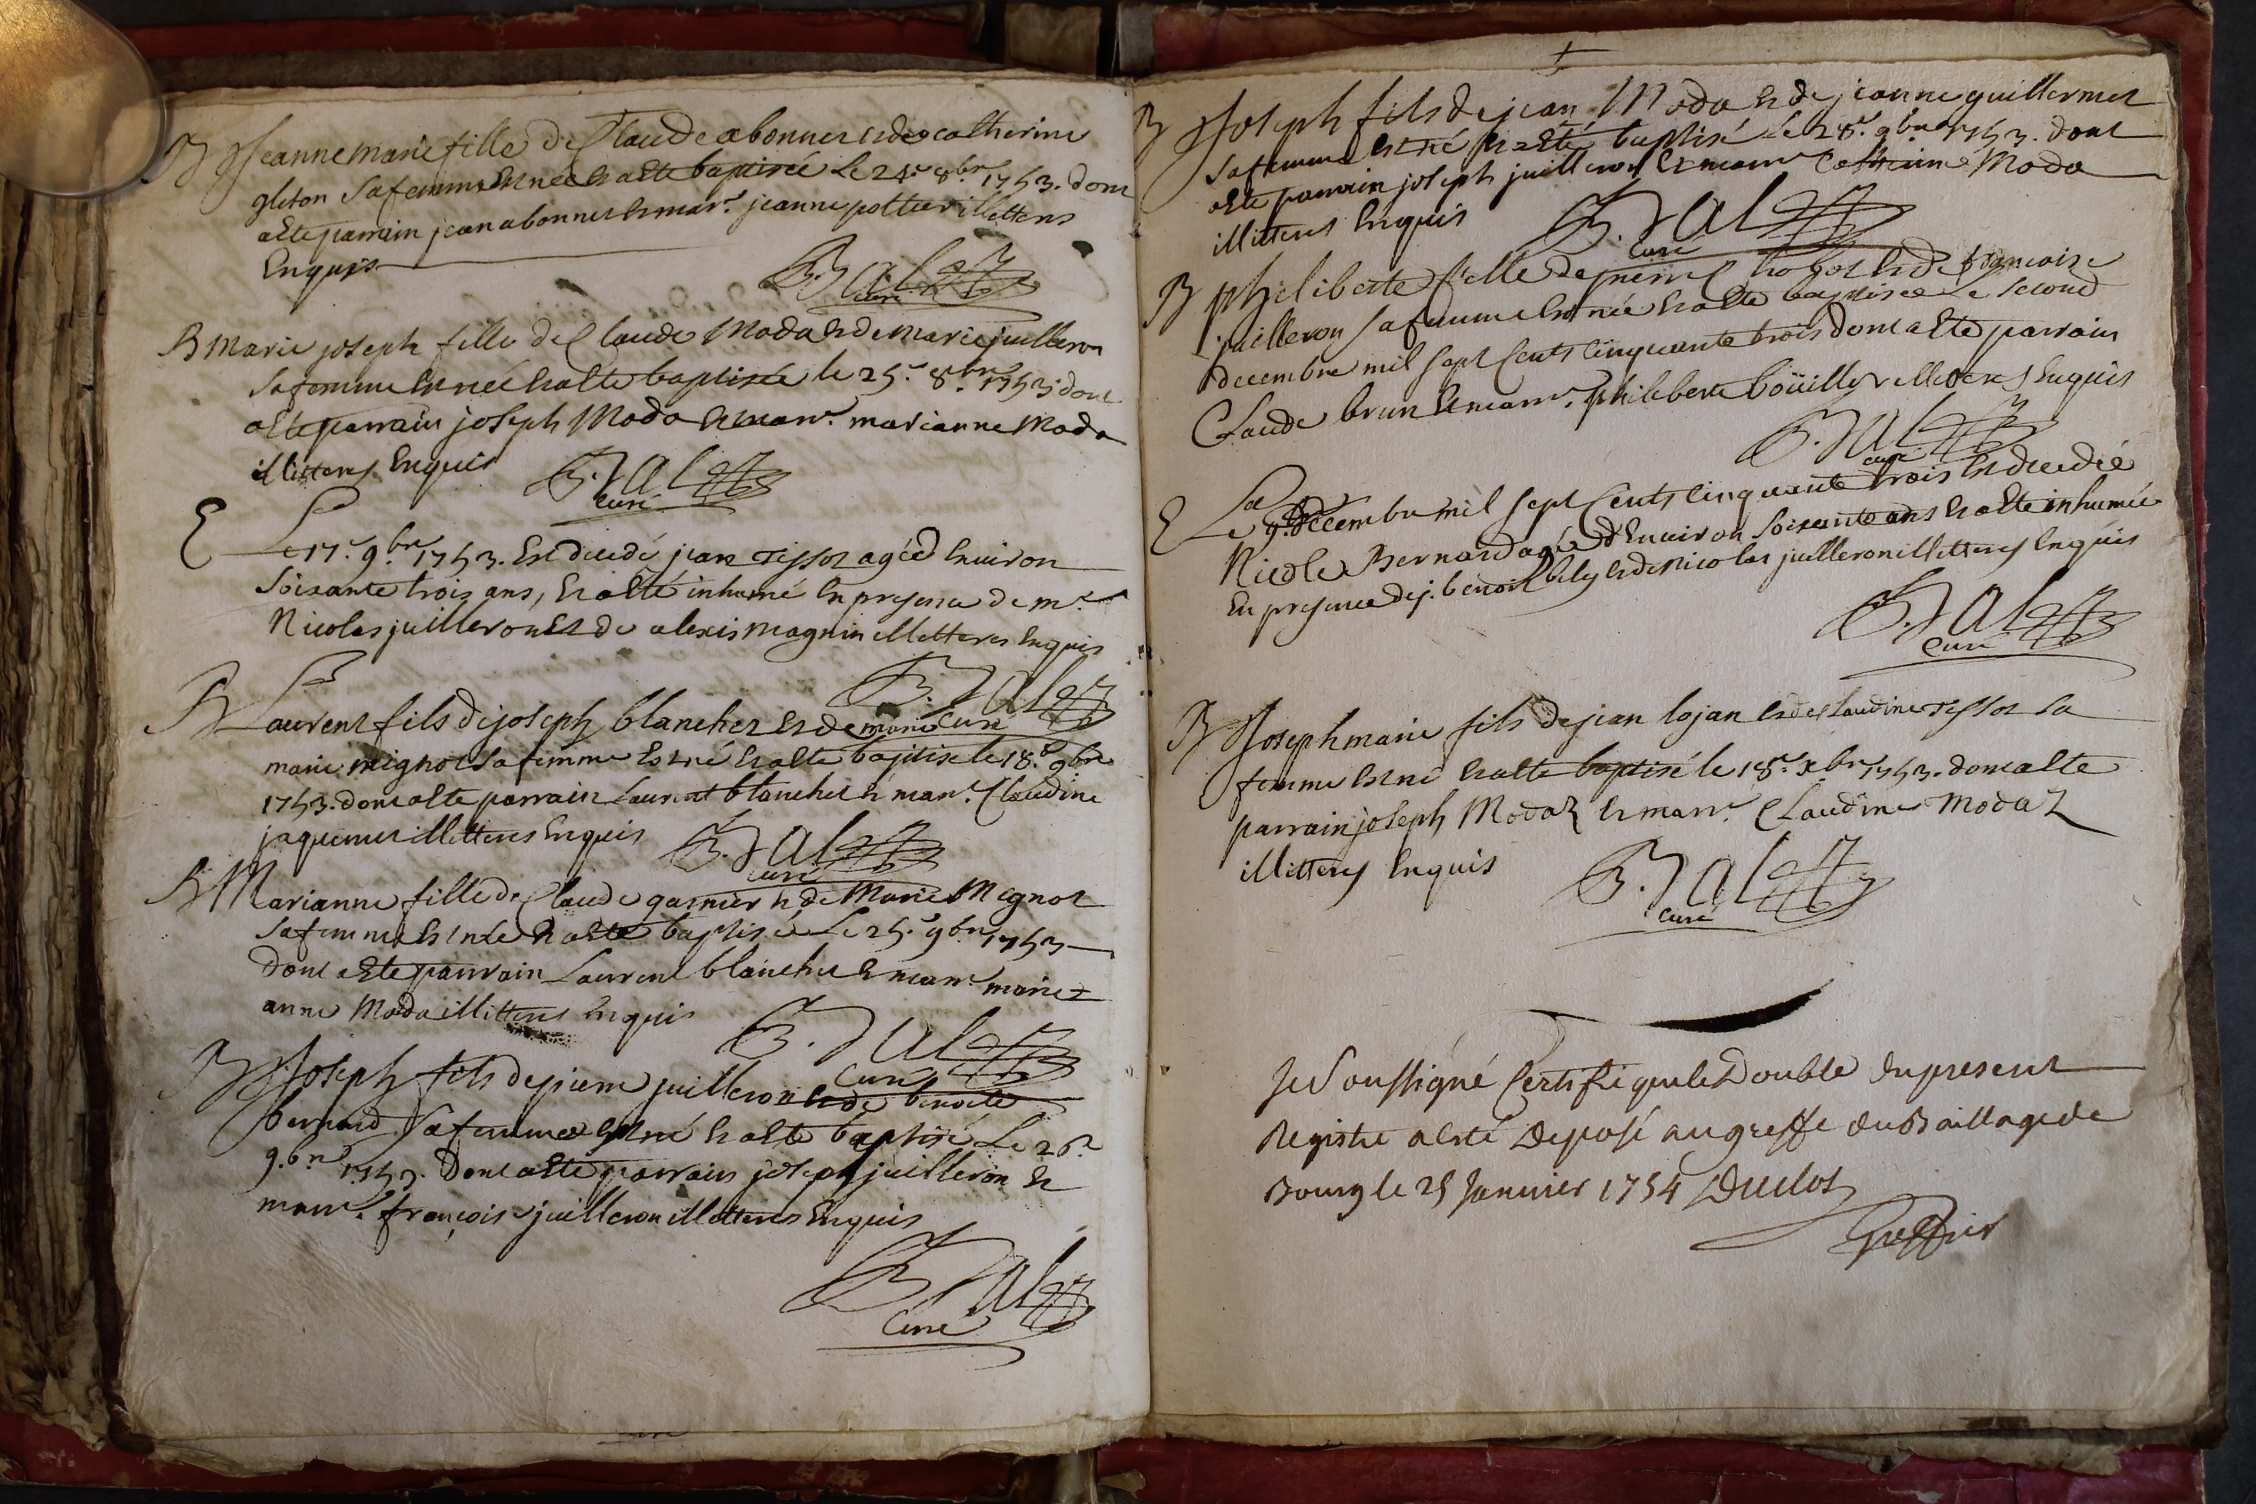 B Jeanne marie fille de Claude abonnet et de catherine
gleton sa femme est née et a esté baptisée le 24e 8bre 1753. dont
a esté parrain jean abonnet et mar.e jeanne pottier illitterés
Enquis
B. Jal
curé
B Marie joseph fille de Claude Moda et de marie juilleron
sa femme est née et a esté baptisée le 25e 8bre 1753 dont
a esté parrain joseph Moda et marr.e marianne Moda
illitterés Enquis
B. Jal
curé
E Le 17e 9bre 1753. Est decedé jean tissot agé d Environ
soixante trois ans, Et a esté inhumé En presence de mr
Nicolas juilleron Et de alexis magnin illitteres Enquis
B. Jal
curé
B Laurent fils de joseph blanchet et de marie
marie mignot sa femme Est né Et a esté baptisé le 18e 9bre
1753. dont a esté parrain Laurent blanchet et marr.e Claudine
jaquemet illitteres Enquis
B. Jal
curé
B Marianne fille de Claude garnier et de Marie Mignot
sa femme Est née Et a esté baptisée Le 25e 9bre 1753
dont a esté parrain Laurent blanchet Et marr.e marie
anne Moda illitterés Enquis
B. Jal
curé
B Joseph fils de pierre juilleron Et de benoite
bernard sa femme Est né Et a esté baptisé Le 26e
9.bre 1753. Dont a esté parrain joseph juilleron Et
marr.e françoise juilleron illitteres Enquis
B. Jal
Curé
B Joseph fils de jean Moda Et de jeanne guillermet
sa femme est né Et a Eté baptisé le 28e 9bre 1753. dont
a esté parrain joseph juilleron Et marr.e Catherine Moda
illitterés Enquis
B. Jal
curé
B philiberte fille de pierre Et de françoise
juilleron sa femme Est née Et a esté baptisée Le second
decembre mil sept Cents Cinquante trois dont a Eté parrain
Claude brun Et marr.e philiberte boüilly illitterés Enquis
B. Jal
curé
E Le 9e decembre mil sept Cents Cinquante trois Est decedée
Nicole Bernard agée d'Environ soixante ans Et a Eté inhumée
En presence de j. benoit Et de Nicolas juilleron illitterés Enquis
B. Jal
Curé
B Joseph marie fils de jean lojan Et de Claudine tissot sa
femme Est né Et a esté baptisé le 18e xbre 1753. dont a esté
parrain joseph Modaz Et marr.e Claudine Modaz
illitterés Enquis
B. Jal
curé
Je Soussigné Certifie que le Double du present
Registre a esté Deposé au greffe du Baillage de
Bourg le 25 Janvier 1754 Duclos
Greffier